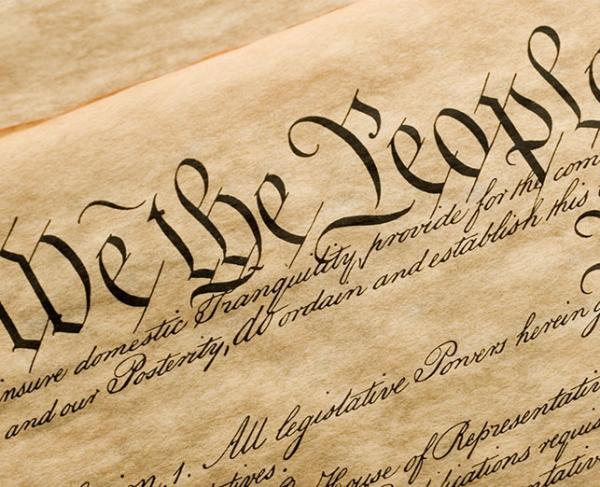 We the People
insure domestic Tranquility, provide for the com
and our Posterity, do ordain and establish this
1. All legislative Powers herein
House of Representativ